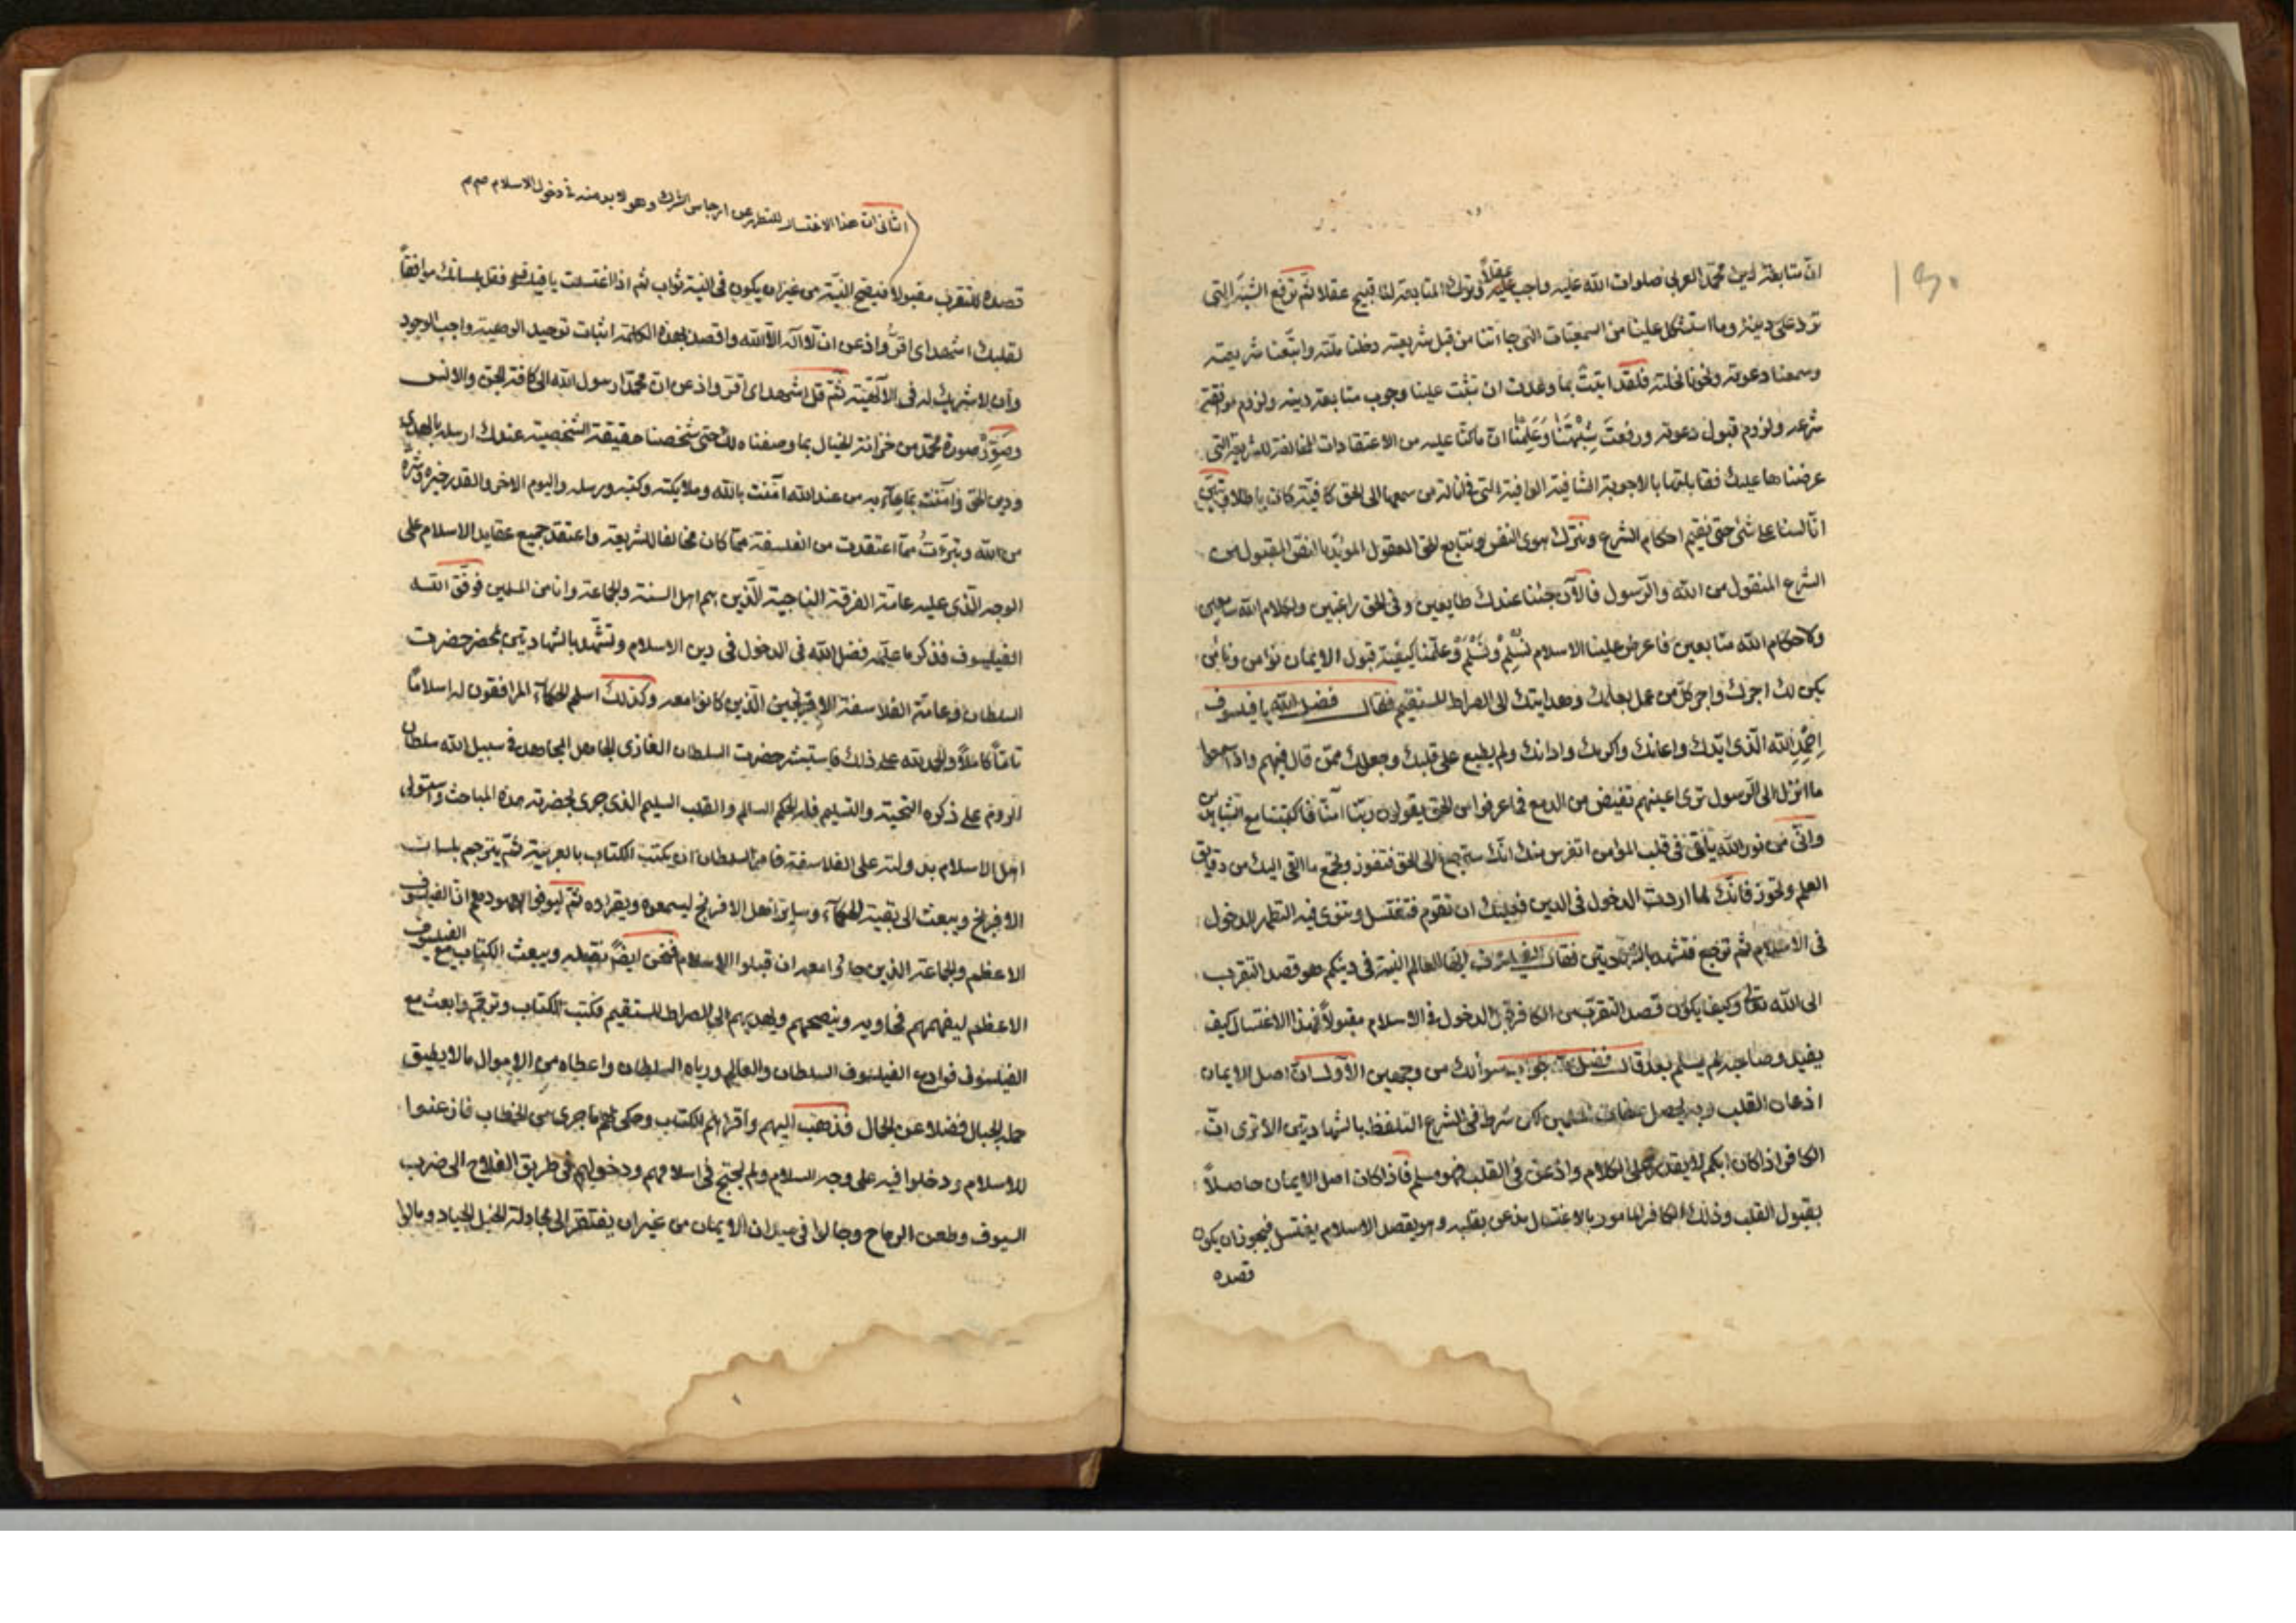 ان متابعة لدين محمد العربي صلوات الله عليه واجب علينا عقلا وترك المتابعة لنا قبيح عقلا ثم ترفع الشبه التي
ترد على دينه وما استشكل علينا من السمعيات التي جاءتنا من قبل شريعته دخلنا ملته واتبعنا شريعته
وسمعنا دعوته ونحونا نحلته فلقد اثبت بما وعدت ان تثبت علينا وجوب متابعة دينه ولزوم موافقة
شرعه ولزوم قبول دعوته ورفعت شبهتنا وعلمنا ان ماكنا عليه من الاعتقادات المخالفة للشريعة التي
عرضناها عليك فقابلتها بالاجوبة الشافية الوافية التي لازالة من سمعها الى الحق كافية كان باطلا فتبين
انا لسنا على شئ حتى نقيم احكام الشرع ونترك هوى النفس ونتابع الحق المعقول المؤيد بالنقل المقبول من
الشرع المنقول من الله والرسول فالآن جئنا عندك طايعين وفي الحق راغبين ولكلام الله سامعين
ولاحكام الله متابعين فاعرض علينا الاسلام نسلم ونسلم وعلمنا كيفية قبول الايمان نؤمن ونأمن
يكن لك اجرك واجر كل من عمل بعلمك وهدايتك الى الصراط المستقيم فقال فضل الله يا فيلسوف
احمد الله الذي ايدك واعانك واكرمك وادانك ولم يطبع على قلبك وجعلك ممن قال فيهم واذا سمعوا
ما انزل الى الرسول ترى اعينهم تفيض من الدمع مما عرفوا من الحق يقولون ربنا آمنا فاكتبنا مع الشاهدين
واني من نور الله يلقى في قلب المؤمن اتفرس منك انك سترجع الى الحق فتفوز وتجمع ما القي اليك من دقايق
العلم وتحوز فانك لما اردت الدخول في الدين فعليك ان تقوم فتغتسل وتنوي فيه التطهر للدخول
في الاسلام ثم ترجع فتشهد بالشهادتين فقال الفيلسوف ايها العالم النية في دينكم هو قصد التقرب
الى الله تعالى وكيف يكون قصد التقرب من الكافر قبل الدخول في الاسلام مقبولا فهذا الاغتسال كيف
يفيد وصاحبه لم يسلم بعد قال فضل الله جواب سوالك من وجهين الاول ان اصل الايمان
اذعان القلب وبه يحصل لكن شرط في الشرع التلفظ بالشهادتين الا ترى ان
الكافر اذا كان ابكم لا يقدر على الكلام واذعن في القلب فهو مسلم فاذا كان اصل الايمان حاصلا
بقبول القلب وذلك الكافر المامور بالاغتسال يذعن بقلبه وهو يقصد الاسلام يغتسل فيجوز ان يكون
قصده
الثاني ان هذا الاغتسال للتطهر عن ارجاس الشرك وهو لا بد منه في دخول الاسلام صح م
قصده للتقرب مقبولا فيصح النية من غير ان يكون في النية ثواب ثم اذا اغتسلت يا فيلسوف فقل بلسانك موافقا
لقلبك اشهد اي اقر واذعن ان لا اله الا الله واقصد بهذه الكلمة اثبات توحيد الوهية واجب الوجود
وان لا شريك له في الالهية ثم قل اشهد اي اقر واذعن ان محمدا رسول الله الى كافة الجن والانس
وصور صورة محمد من خزانة الخيال بما وصفناه لك حتى شخصنا حقيقته الشخصية عندك ارسله بالهدى
ودين الحق وآمنت بما جاء به من عند الله آمنت بالله وملايكته وكتبه ورسله واليوم الاخر والقدر خيره وشره
من الله وتبرءت مما اعتقدت من الفلسفة مما كان مخالفا للشريعة واعتقد جميع عقايد الاسلام على
الوجه الذي عليه عامة الفرقة الناجية الذين هم اهل السنة والجماعة وانا من المسلمين فوفق الله
الفيلسوف فذكر ما علمه فضل الله في الدخول في دين الاسلام وتشهد بالشهادتين بمحضر حضرت
السلطان وعامة الفلاسفة الافرنجيين الذين كانوا معه وكذلك اسلم الحكماء المرافقون له اسلاما
تاما كاملا والحمد لله على ذلك فاستبشر حضرت السلطان الغازي المجاهد في سبيل الله سلطان
الروم على ذكره التحية والتسليم فله الحكم السالم والقلب السليم الذي جرى بحضرته هذه المباحث واستولى
اهل الاسلام بدولته على الفلاسفة فامر السلطان ان يكتب الكتاب بالعربية ثم يترجم بلسان
الافرنج ويبعث الى بقية الحكماء وسائر اهل الافرنج ليسمعوه ويقراءه ثم ليوفوا العهود مع ان الفيلسوف
الاعظم والجماعة الذين جاؤا معه ان قبلوا الاسلام فنحن ايضا نقبله ويبعث الكتاب مع الفيلسوف
الاعظم ليفهمهم فحاويه وينصحهم ويهديهم الى الصراط المستقيم فكتب الكتاب وترجم وابعث مع
الفيلسوف فوادع الفيلسوف السلطان والعالم ورباه السلطان واعطاه من الاموال ما لا يطيق
حمله الجبال فضلا عن الجمال فذهب اليهم واقرا لهم الكتاب وحكى لهم ما جرى من الخطاب فاذعنوا
للاسلام ودخلوا فيه على وجه السلام ولم يحتج في اسلامهم ودخولهم في طريق الفلاح الى ضرب
السيوف وطعن الرماح وجالوا في ميدان الايمان من غير ان يفتقر الى مجادلة الخيل الجياد ومالوا